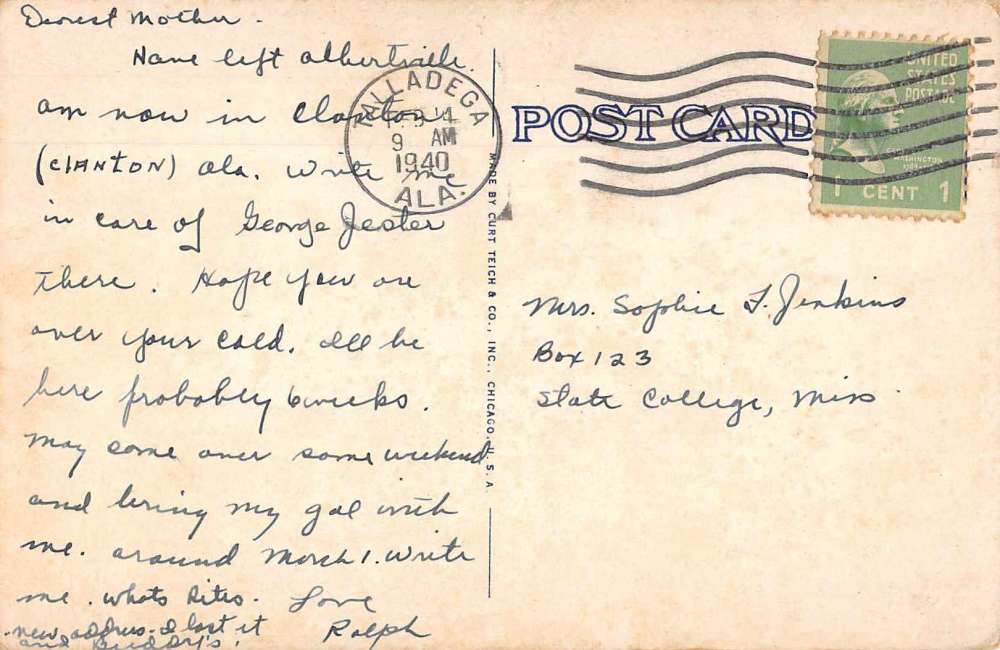 Dearest Mother.
Have left Albertville.
am now in Clanton
(CLANTON) Ala. Write me
in care of George Jester
there. Hope you are
over your cold. Ill be
here probably 6 weeks.
May come over some weekend
and bring my gal with
me. around March 1. Write
me. whats Rita's.
new address. I lost it
and Buddy's.
Love
Ralph
TALLADEGA
9 AM
1940
ALA.
MADE BY CURT TEICH & CO., INC., CHICAGO, U. S. A.
POST CARD
UNITED
STATES
POSTAGE
WASHINGTON
1 CENT 1
Mrs. Sophie F. Jenkins
Box 123
State College, Miss